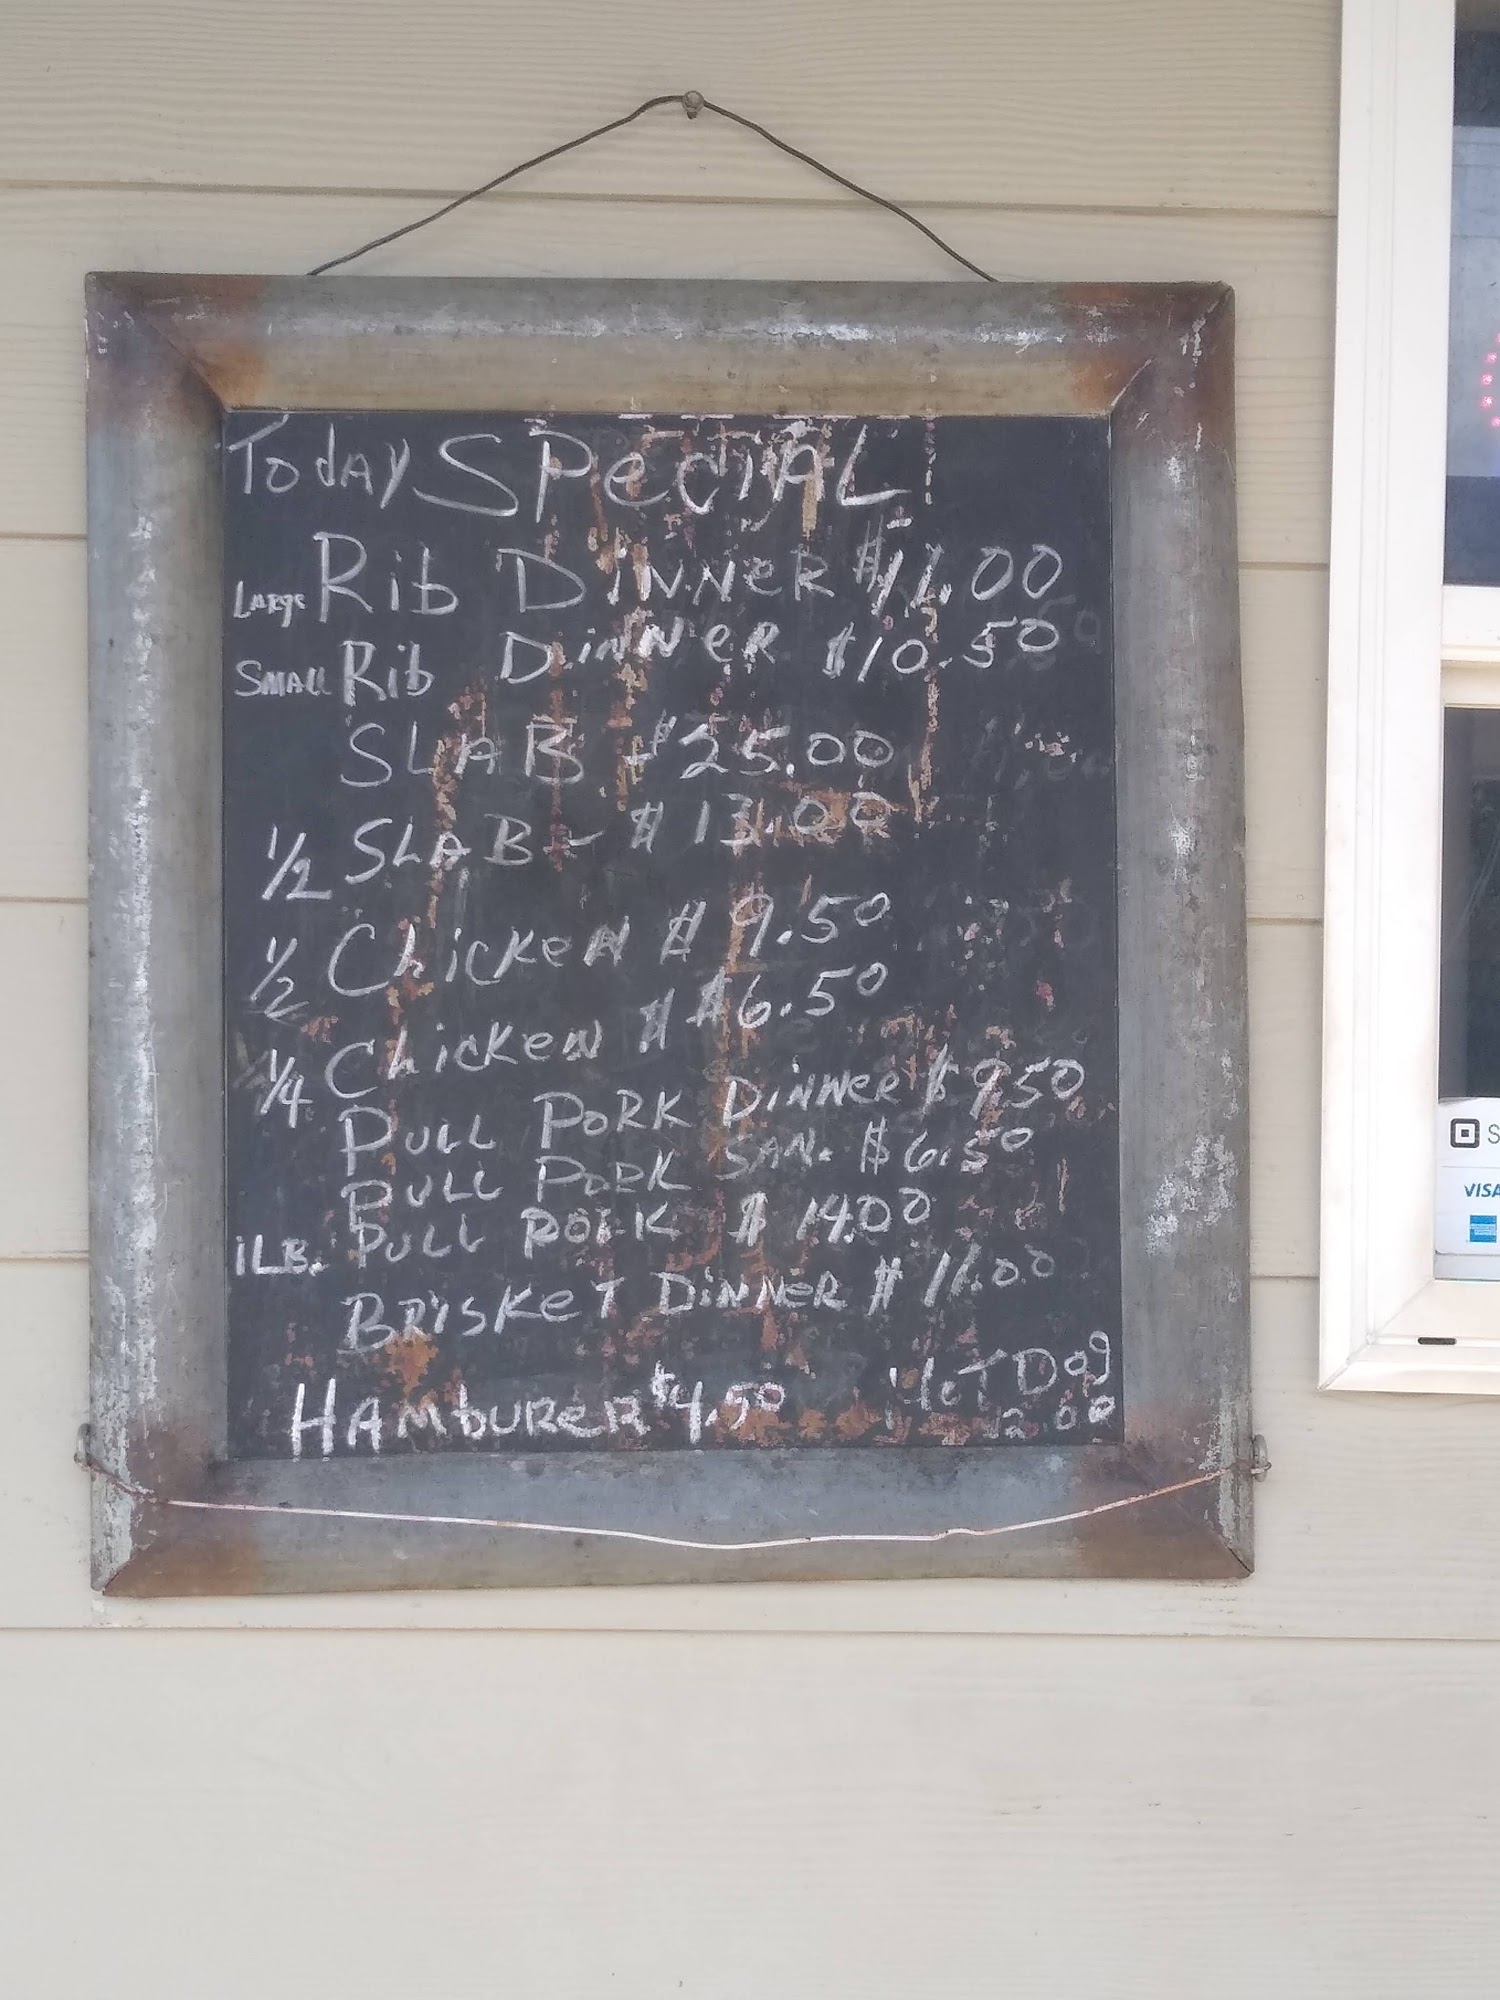 Today Special
Large Rib Dinner $11.00
Small Rib Dinner $10.50
Slab $25.00
1/2 Slab - $13.00
1/2 Chicken $ 9.50
1/4 Chicken $ $6.50
Pull Pork Dinner $9.50
Pull Pork San. $6.50
1LB. Pull Pork $14.00
Brisket Dinner $11.00
Hamburer $4.50
Hot Dog
2.00
S
VISA